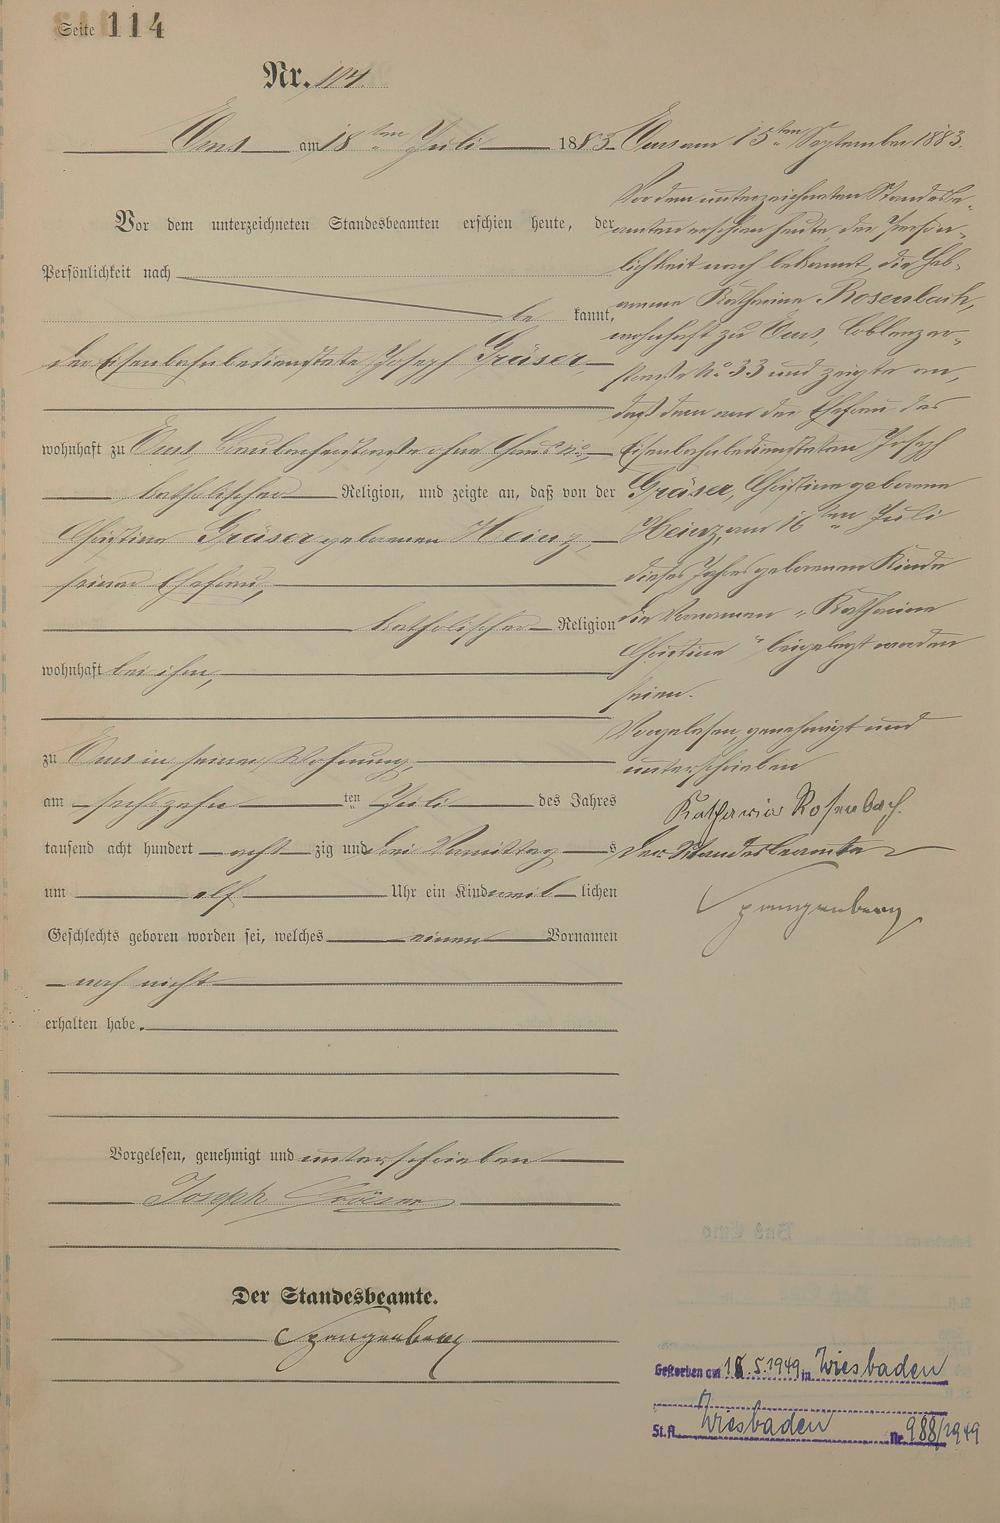 Seite 114
Nr. 114.
Ems am 18ten Juli 1883
Vor dem unterzeichneten Standesbeamten erschien heute, der
Persönlichkeit nach
be kannt,
der Eisenbahnbedienstete Joseph Gräser,
wohnhaft zu Ems, Braubacherstraße ohne Haus No,
katholischer Religion, und zeigte an, daß von der
Christine Gräser geborenen Heinz,
seiner Ehefrau,
katholischer Religion
wohnhaft bei ihm,
zu Ems in seiner Wohnung,
am sechszehn ten Juli des Jahres
tausend acht hundert acht zig und drei Vormittag s
um elf Uhr ein Kind weib lichen
Geschlechts geboren worden sei, welches einen Vornamen
noch nicht
erhalten habe.
Vorgelesen, genehmigt und unterschrieben
Joseph Gräser
Der Standesbeamte.
Spangenberg
Ems am 15ten September 1883.
Vor dem unterzeichneten Standesbe-
amten erschien heute, der Persön-
lichkeit nach bekannt, die Heb-
amme Katharina Rosenbach,
wohnhaft zu Ems, Coblenzer-
straße No 33 und zeigte an,
daß dem von der Ehefrau des
Eisenbahnbediensteten Joseph
Gräser, Christine geborene
Heinz, am 16ten Juli
dieses Jahres geborenen Kinde
die Vornamen „Katharina
Christine" beigelegt worden
seien.
Vorgelesen, genehmigt und
unterschrieben
Katharina Rosenbach.
Der Standesbeamte
Spangenberg
Gestorben am 18.5.1949 in Wiesbaden
St.A. Wiesbaden Nr. 988/1949